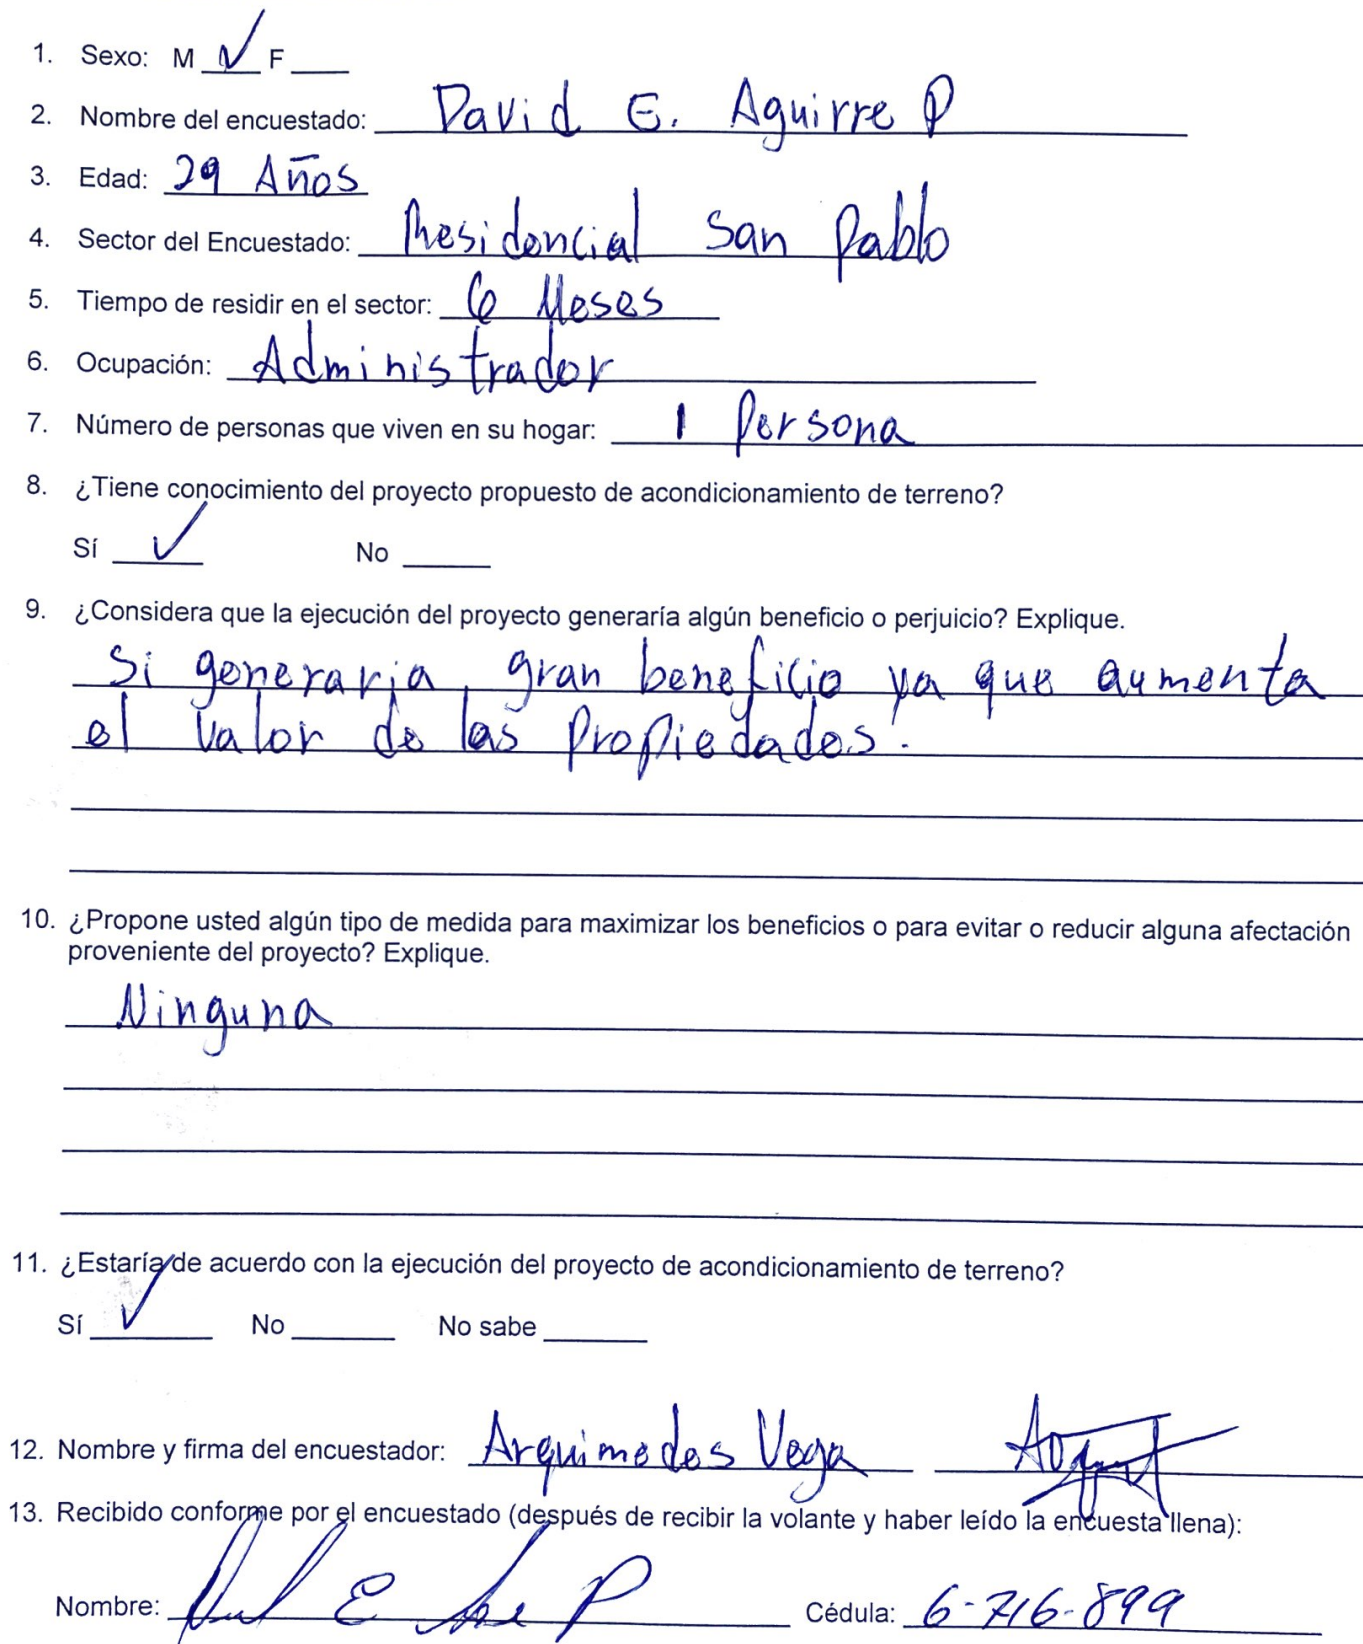 1. Sexo: M ✓ F ____
2. Nombre del encuestado: David E. Aguirre P
3. Edad: 29 Años
4. Sector del Encuestado: Residencial San Pablo
5. Tiempo de residir en el sector: 6 Meses
6. Ocupación: Administrador
7. Número de personas que viven en su hogar: 1 Persona
8. ¿Tiene conocimiento del proyecto propuesto de acondicionamiento de terreno?
Sí ✓ No ____
9. ¿Considera que la ejecución del proyecto generaría algún beneficio o perjuicio? Explique.
Si generaria, gran beneficio ya que aumenta
el valor de las propiedades.
10. ¿Propone usted algún tipo de medida para maximizar los beneficios o para evitar o reducir alguna afectación
proveniente del proyecto? Explique.
Ninguna
11. ¿Estaría de acuerdo con la ejecución del proyecto de acondicionamiento de terreno?
Sí ✓ No ____ No sabe ____
12. Nombre y firma del encuestador: Arquimedes Vega
13. Recibido conforme por el encuestado (después de recibir la volante y haber leído la encuesta llena):
Nombre: E P Cédula: 6-716-899